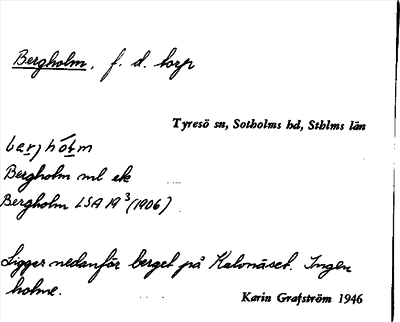 Bergholm, f. d. torp
Tyresö sn, Sotholms hd, Sthlms län
Bergholm ml ek
Bergholm LSA A³ (1906)
Ligger nedanför berget på Kalvnäset. Ingen
holme.
Karin Grafström 1946